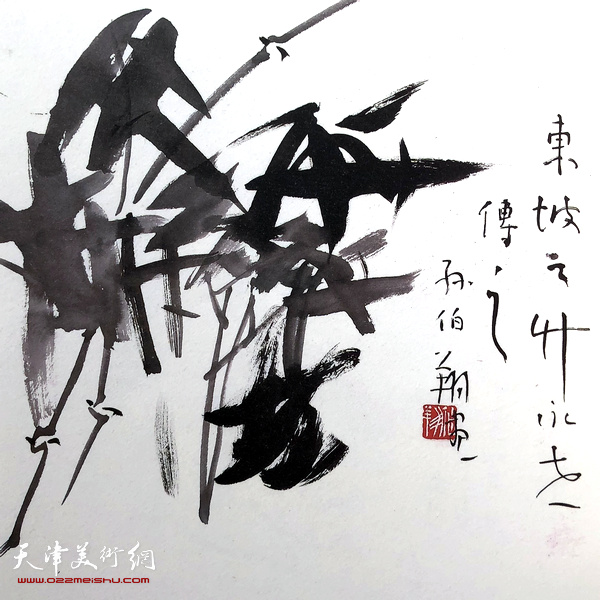 東坡之竹永世
傳之
孫伯翔畫
天津美術網
www.022meishu.com